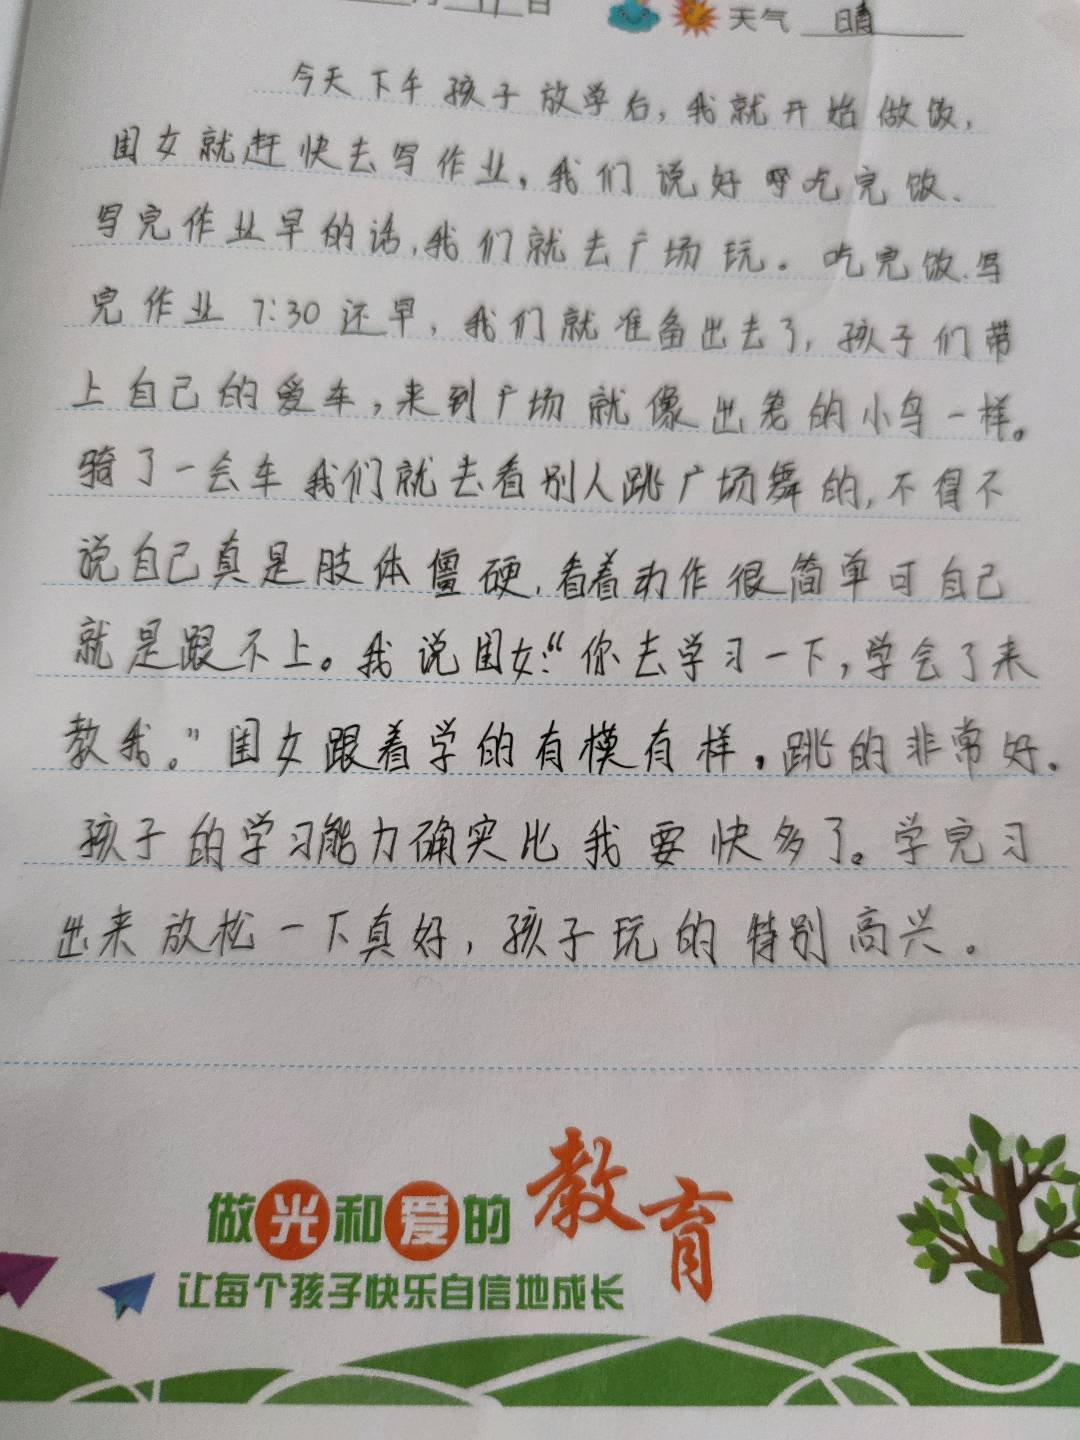 月 17 日 天气 晴
今天下午孩子放学后，我就开始做饭，
闺女就赶快去写作业，我们说好吃完饭.
写完作业早的话，我们就去广场玩。吃完饭.写
完作业 7:30 还早，我们就准备出去了，孩子们带
上自己的爱车，来到广场就像出笼的小鸟一样。
骑了一会车我们就去看别人跳广场舞的，不得不
说自己真是肢体僵硬，看着动作很简单可自己
就是跟不上。我说闺女：“你去学习一下，学会了来
教我。”闺女跟着学的有模有样，跳的非常好.
孩子的学习能力确实比我要快多了。学完习
出来放松一下真好，孩子玩的特别高兴。
做光和爱的教育
让每个孩子快乐自信地成长